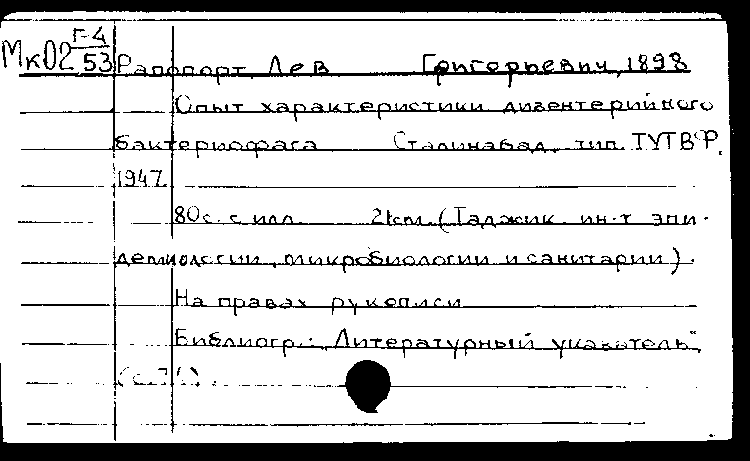 МкО2 Г-4/53
Рапопорт, Лев Григорьевич, 1898
Опыт характеристики дизентерийного
бактериофага Сталинабад, тип.
1947.
80 с. с илл. 21 см. (Таджик. ин-т эпи-
демиологии, микробиологии и санитарии).
На правах рукописи
Библиогр.: "Литературный указатель",